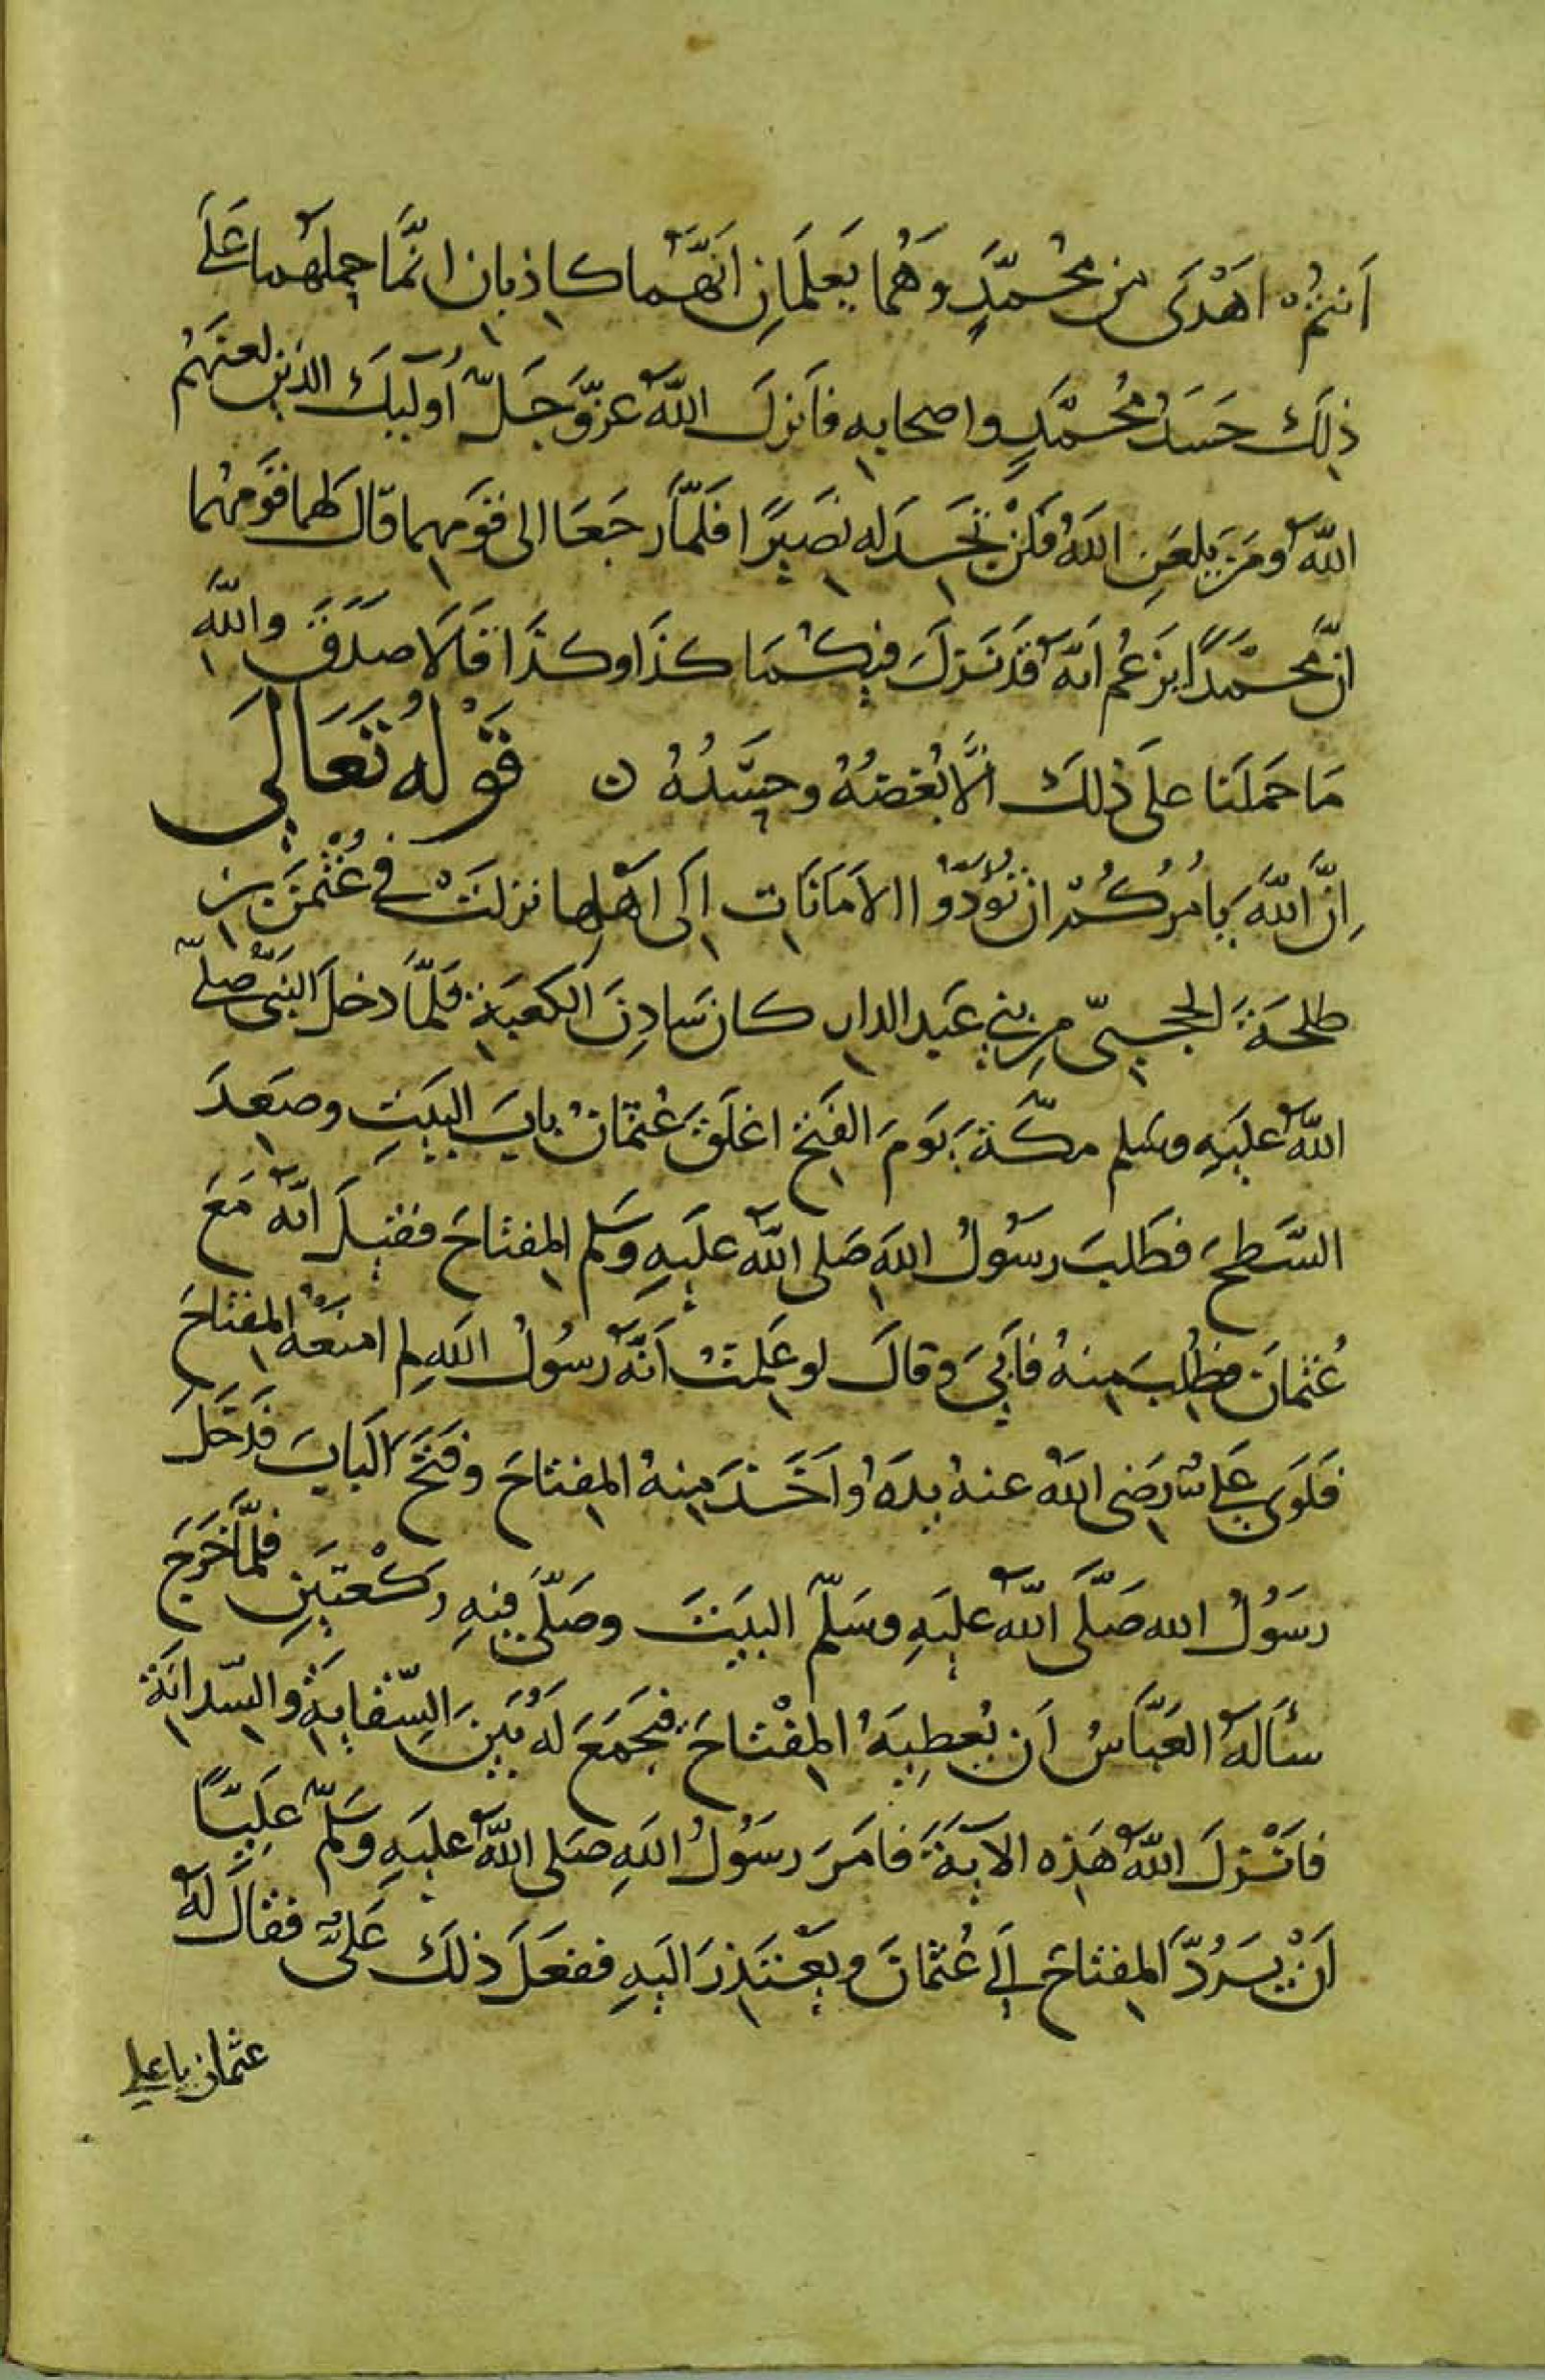 اَنتمُ اَهْدَى من محُمّدٍ وَهُما يَعلَمَانِ اَنَّهُما كاذبان انمَّا حملهُما عَلَى
ذلِكَ حَسَدُ مُحمَّدٍ واصحابِهِ فاَنزلَ اللهُ عزَّوَجَلَّ اُولَيِكَ الذين لعنَهُم
اللهُ ومَن يلعَنِ اللهُ فَلَنْ تجَدَ له نصَيرًا فَلمّا رجَعَا الى قَومِهِما قالَ لهُما قَومُهُما
انّ محمّدًا يزعُم انّهُ قَد نَزلَ فيكُمَا كذَا وكذَا قَالَا صدَقَ واللهِ
مَا حَملَنا على ذلكَ الَّا بُغضُهُ وحَسَدُهُ ں قَوْلُهُ تَعَالىَ
اِنَّ اللهَ يَامُركُم ان تؤدّوُا الاَمَانَاتِ اِلَى اَهْلِها نزلَتْ فى عُثْمنَ بن
طلحَةَ الحجَبىّ مِن بنى عَبدِ الدارِ كان سَادِنَ الكعبَةِ فلَمَّا دخلَ النبَىُّ صلّى
اللهُ علَيهِ وسَلم مكّةَ يَومَ الفَتحِ اغلَقَ عُثمانُ بابَ البَيتِ وصَعِدَ
السَّطحَ فطَلبَ رسَوُلُ اللهِ صَلى اللهُ علَيهِ وَسَلم المِفتاحَ فقيلَ انّهُ مَعَ
عُثمانَ فطُلِبَ منِهُ فاَبىَ وقالَ لو عَلِمتُ اَنَّهُ رسُولُ اللهِ لم امنَعْهُ المِفتاحَ
فلَوَى عَلىٌّ رَضىَ اللهُ عنهُ يدَهُ واَخَذَ مِنهُ المِفتاحَ وفَتحَ البَابَ فدَخَلَ
رسَوُلُ الله صَلَّى اللهُ علَيهِ وسَلّمَ البيَتَ وصَلّى فيهِ رَكْعتَينِ فلمَّا خَرَجَ
سأَلهُ العَبّاسُ اَن يُعطِيَهُ المِفْتاحَ فيَجمَعَ لَهُ بيَنَ السِّقايةِ والسِّدانَةِ
فاَنْزلَ اللهُ هَذِه الآيةَ فَامَرَ رسَوُلُ اللهِ صَلى اللهُ علَيهِ وَسَلّم عَليًّا
اَنْ يَرُدّ المِفتاحَ اِلى عُثمانَ ويَعْتَذِرَ اليَهِ ففعَلَ ذلكَ عَلىٌّ فقالَ لهُ
عثمان يا على